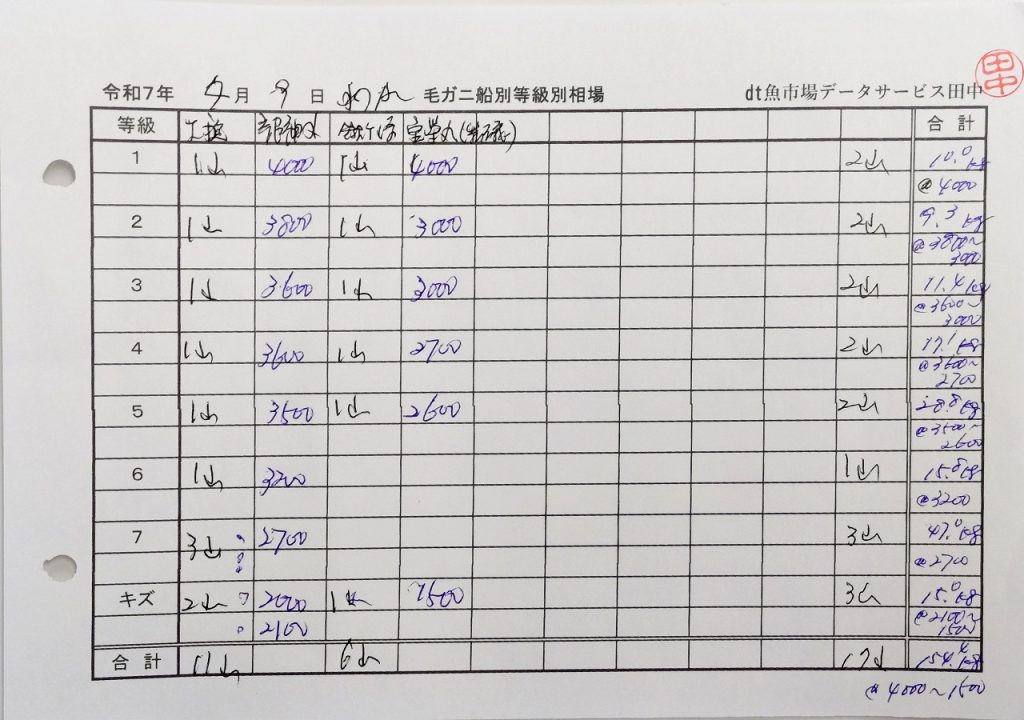 令和7年 月 9 日 毛ガニ船別等級別相場 dt魚市場データサービス田中
田中
等級 合計
1 1山 4000 1山 4000 2山 10.0kg
@4000
2 1山 3800 1山 3000 2山 9.3kg
@3800～
3000
3 1山 3600 1山 3000 2山 11.4kg
@3600～
3000
4 1山 3600 1山 2700 2山 17.1kg
@3600～
2700
5 1山 3500 1山 2600 2山 28.8kg
@3500～
2600
6 1山 3200 1山 15.8kg
@3200
7 3山 2700 3山 47.0kg
@2700
キズ 2山 2000 1山 1500 3山 15.0kg
2100 @2100～
1500
合計 11山 6山 17山 154.4kg
@4000～1500